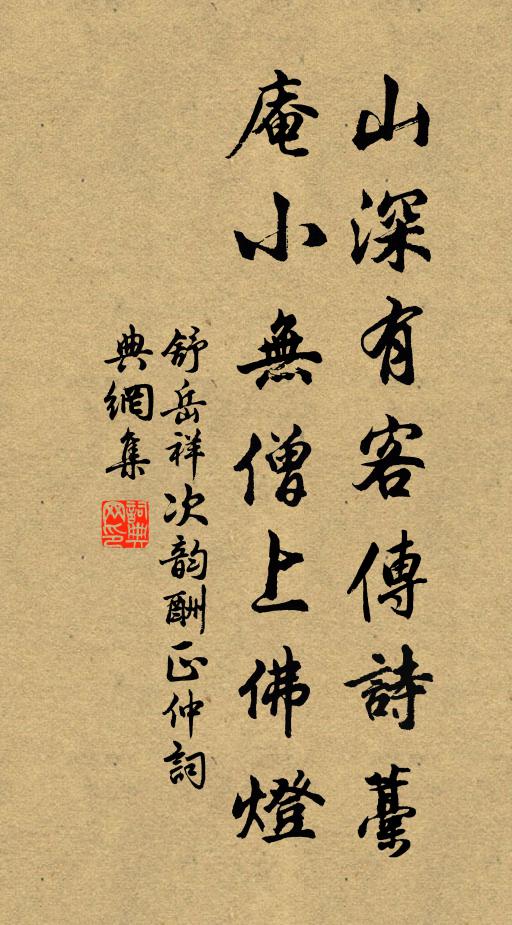 山深有客傳詩藁
庵小無僧上佛燈
舒岳祥次韵酬正仲詞
典網集
詞典網印